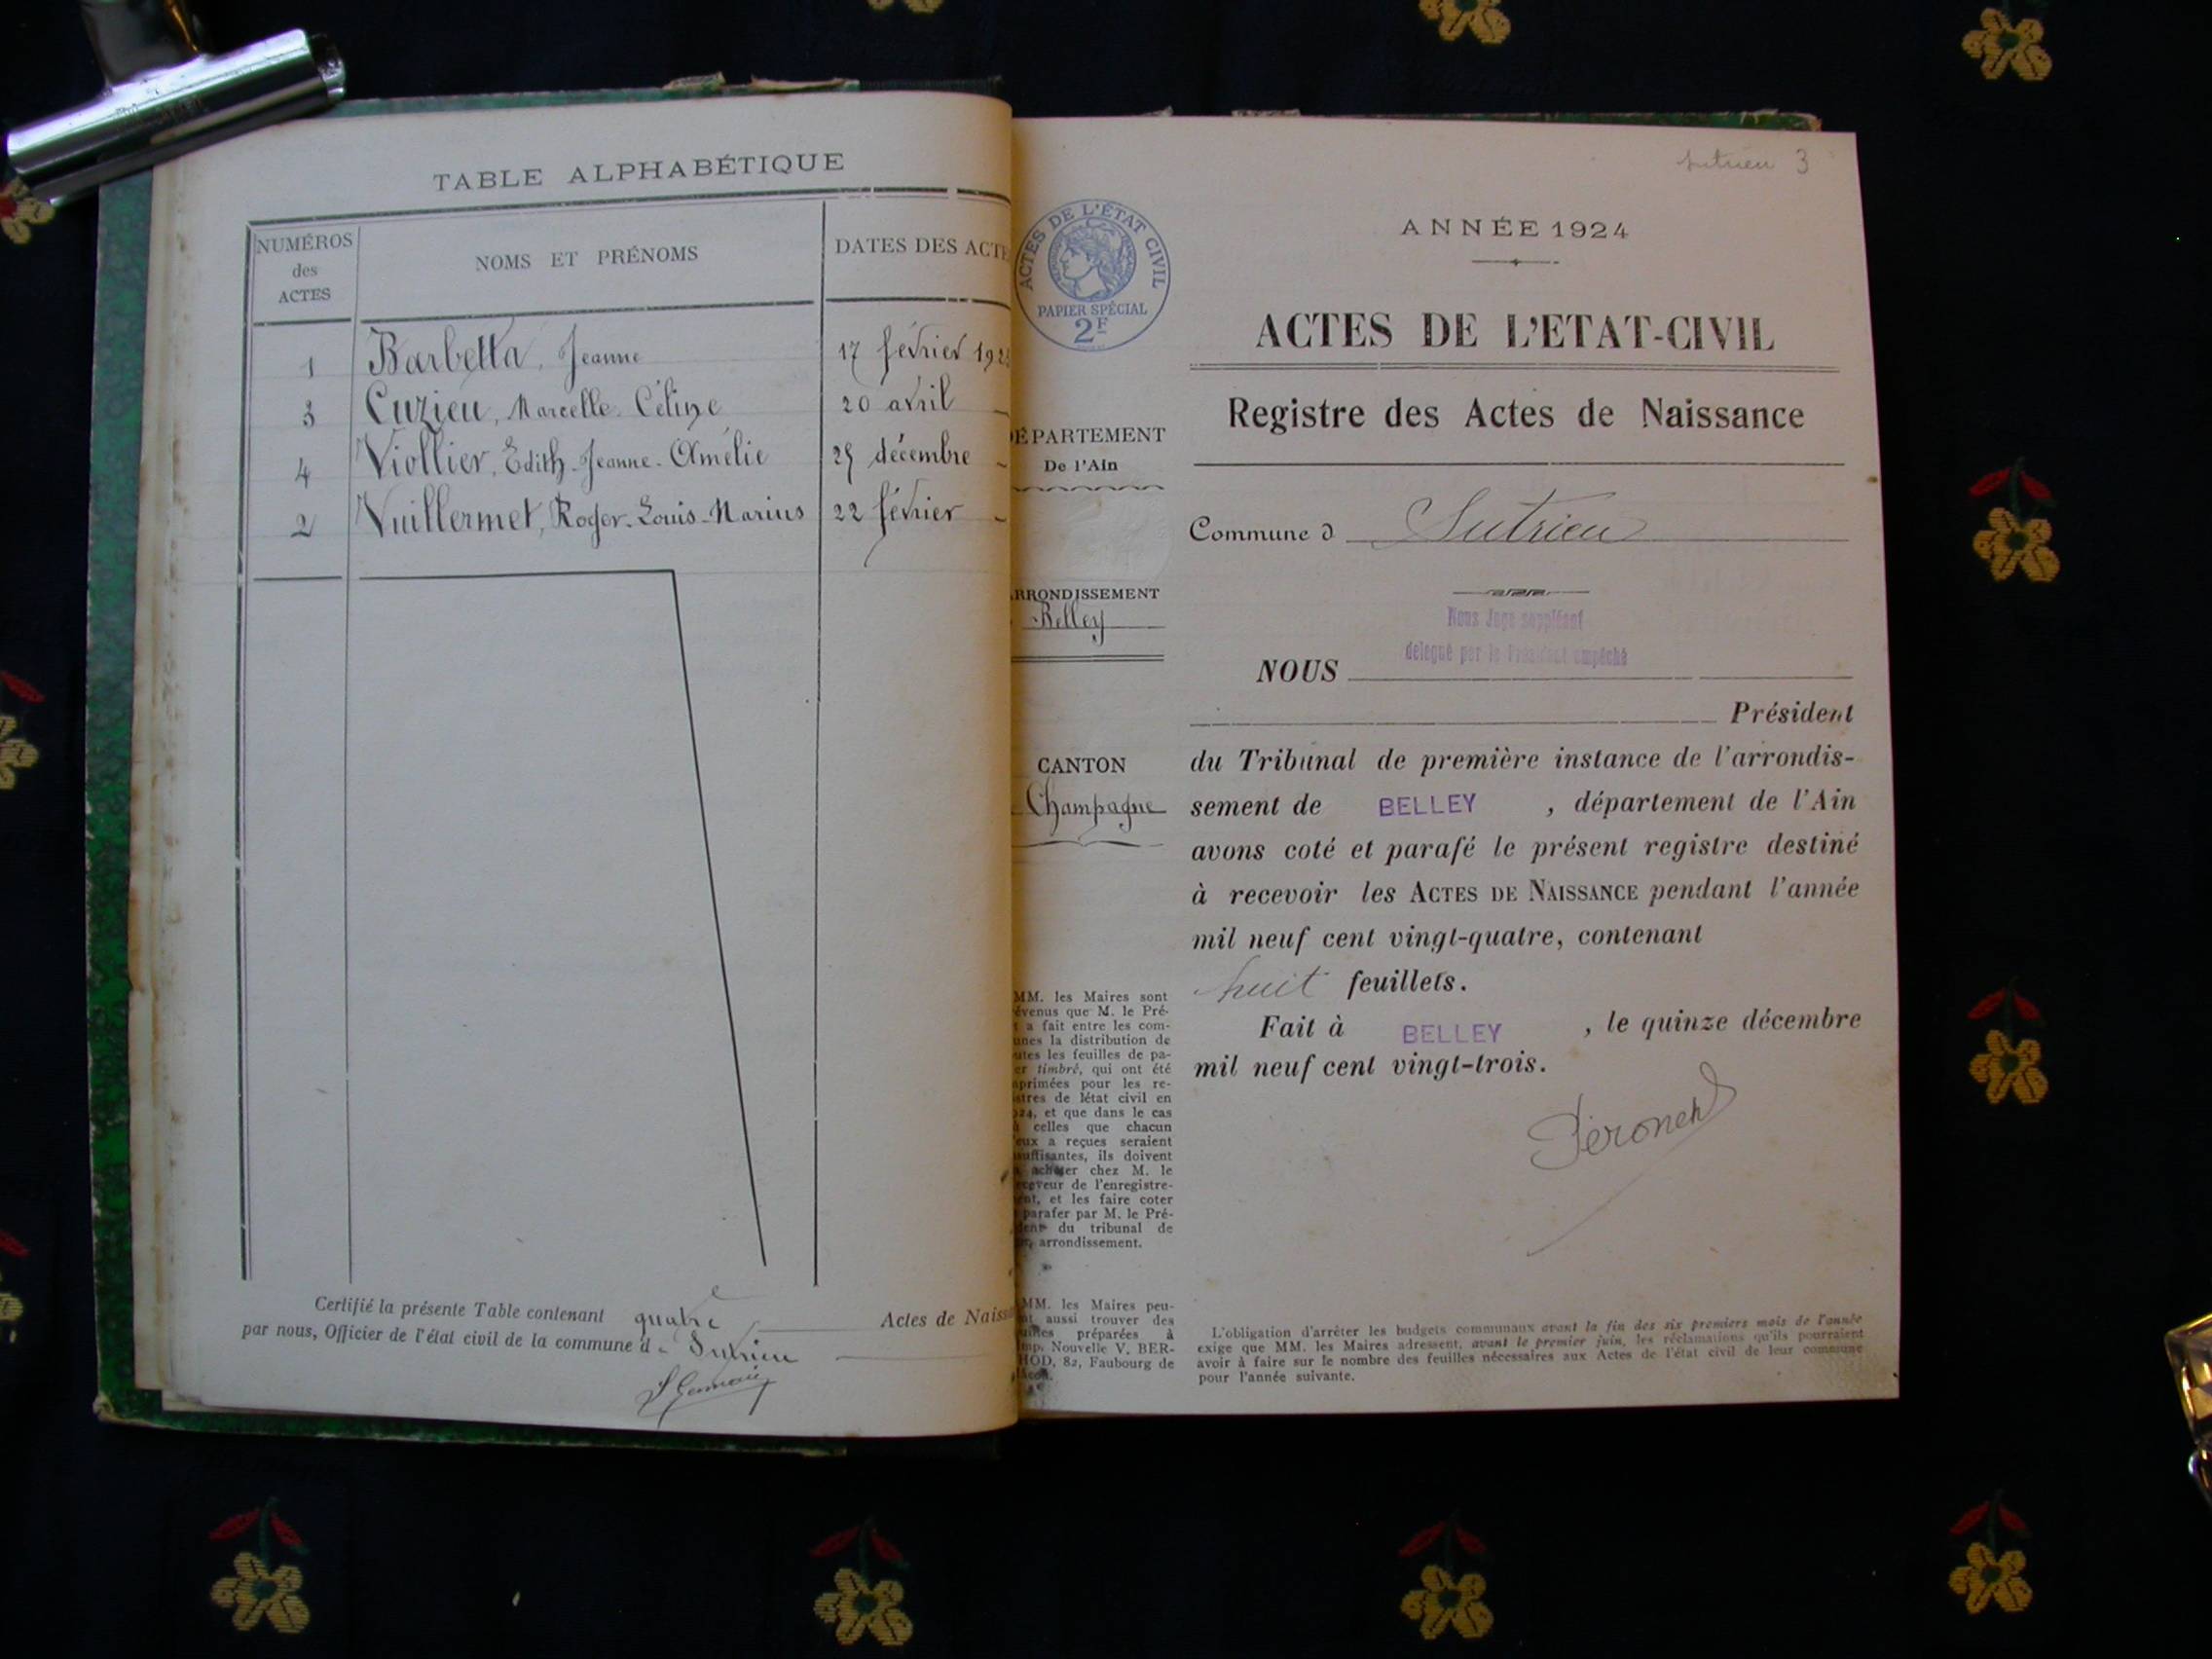 TABLE ALPHABÉTIQUE
NUMÉROS des ACTES
NOMS ET PRÉNOMS
DATES DES ACTE
1 Barbetta, Jeanne 17 février
3 Cuzieu, Marcelle-Céline 20 avril
4 Viollier, Edith-Jeanne-Amélie décembre
2 Vuillermet, Roger-Louis-Marius 22 février
Certifié la présente Table contenant quatre Actes de Naiss
par nous, Officier de l'état civil de la commune d Sutrieu
Sutrieu 3
ACTES DE L'ÉTAT CIVIL
PAPIER SPÉCIAL
2F
DÉPARTEMENT
De l'Ain
ARRONDISSEMENT
Belley
CANTON
Champagne
MM. les Maires sont
évenus que M. le Pré-
t a fait entre les com-
unes la distribution de
utes les feuilles de pa-
er timbré, qui ont été
nprimées pour les re-
stres de létat civil en
924, et que dans le cas
celles que chacun
eux a reçues seraient
suffisantes, ils doivent
acheter chez M. le
eceveur de l'enregistre-
ent, et les faire coter
parafer par M. le Pré-
dent du tribunal de
arrondissement.
MM. les Maires peu-
nt aussi trouver des
uilles préparées à
Imp. Nouvelle V. BER-
HOD, 82, Faubourg de
âcon.
ANNÉE 1924
ACTES DE L'ETAT-CIVIL
Registre des Actes de Naissance
Commune d Sutrieu
Nous Juge suppléant
délégué par le Président empêché
NOUS
Président
du Tribunal de première instance de l'arrondis-
sement de BELLEY, département de l'Ain
avons coté et parafé le présent registre destiné
à recevoir les ACTES DE NAISSANCE pendant l'année
mil neuf cent vingt-quatre, contenant
huit feuillets.
Fait à BELLEY, le quinze décembre
mil neuf cent vingt-trois.
L'obligation d'arrêter les budgets communaux avant la fin des six premiers mois de l'année
exige que MM. les Maires adressent, avant le premier juin, les réclamations qu'ils pourraient
avoir à faire sur le nombre des feuilles nécessaires aux Actes de l'état civil de leur commune
pour l'année suivante.